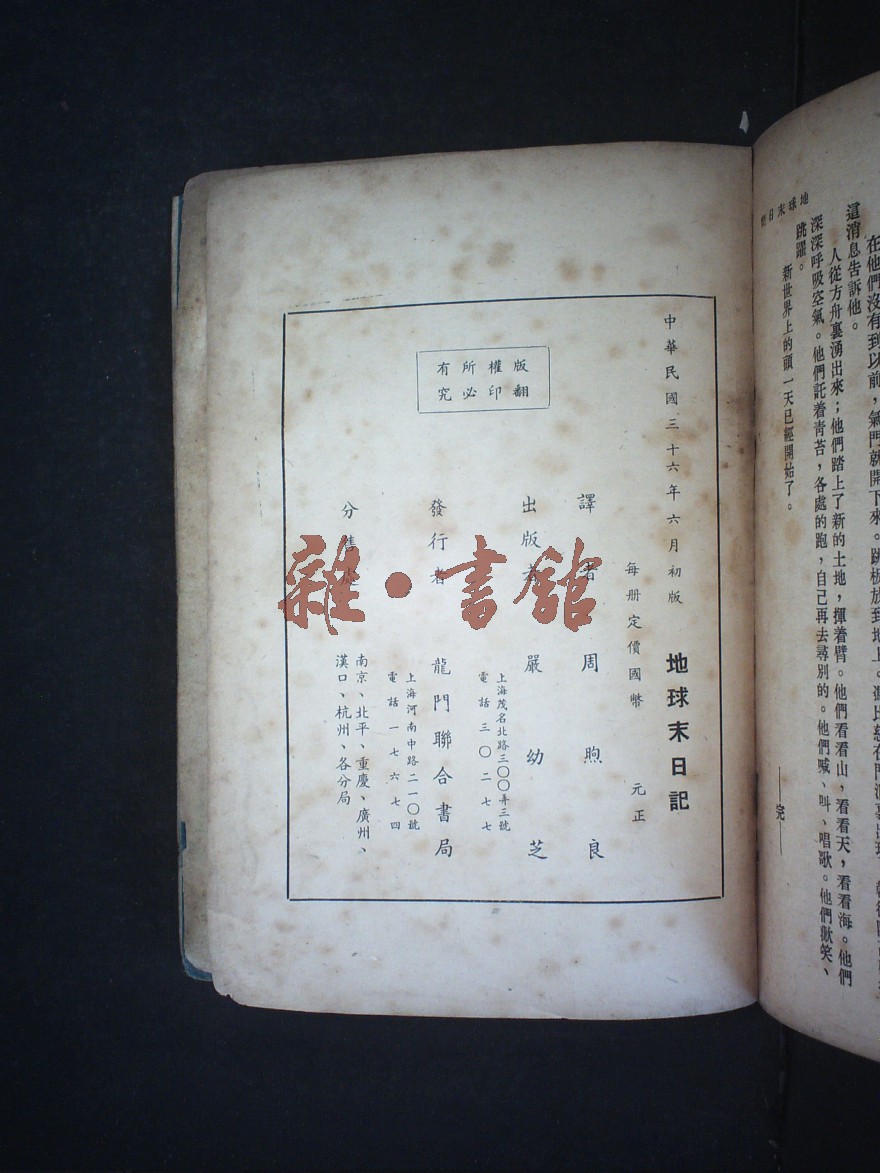 地球末日記
在他們沒有到以前，氣門就開下來。跳板放到地上。
這消息告訴他。
人從方舟裏湧出來；他們踏上了新的土地，揮着臂。他們看看山，看看天，看看海。他們
深深呼吸空氣。他們託着青苔，各處的跑，自己再去尋別的。他們喊、叫、唱歌。他們歡笑、
跳躍。
新世界上的頭一天已經開始了。
——完——
中華民國三十六年六月初版
地球末日記
每册定價國幣 元正
譯者 周煦良
出版者 嚴幼芝
上海茂名北路三〇〇弄三號
電話三〇二七七
發行者 龍門聯合書局
上海河南中路二一〇號
電話一七六七四
分售處
南京、北平、重慶、廣州、
漢口、杭州、各分局
版權所有
翻印必究
雜·書館